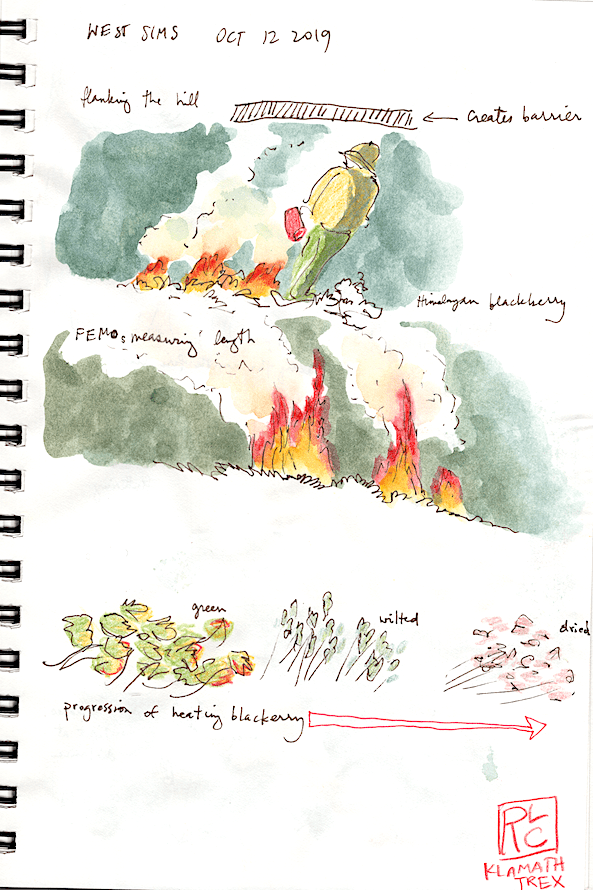 WEST SIMS OCT 12 2019
flanking the hill
← Creates barrier
Himalayan blackberry
FEMOs measuring length
green
wilted
dried
progression of heating blackerry
RLC
KLAMATH
TREX